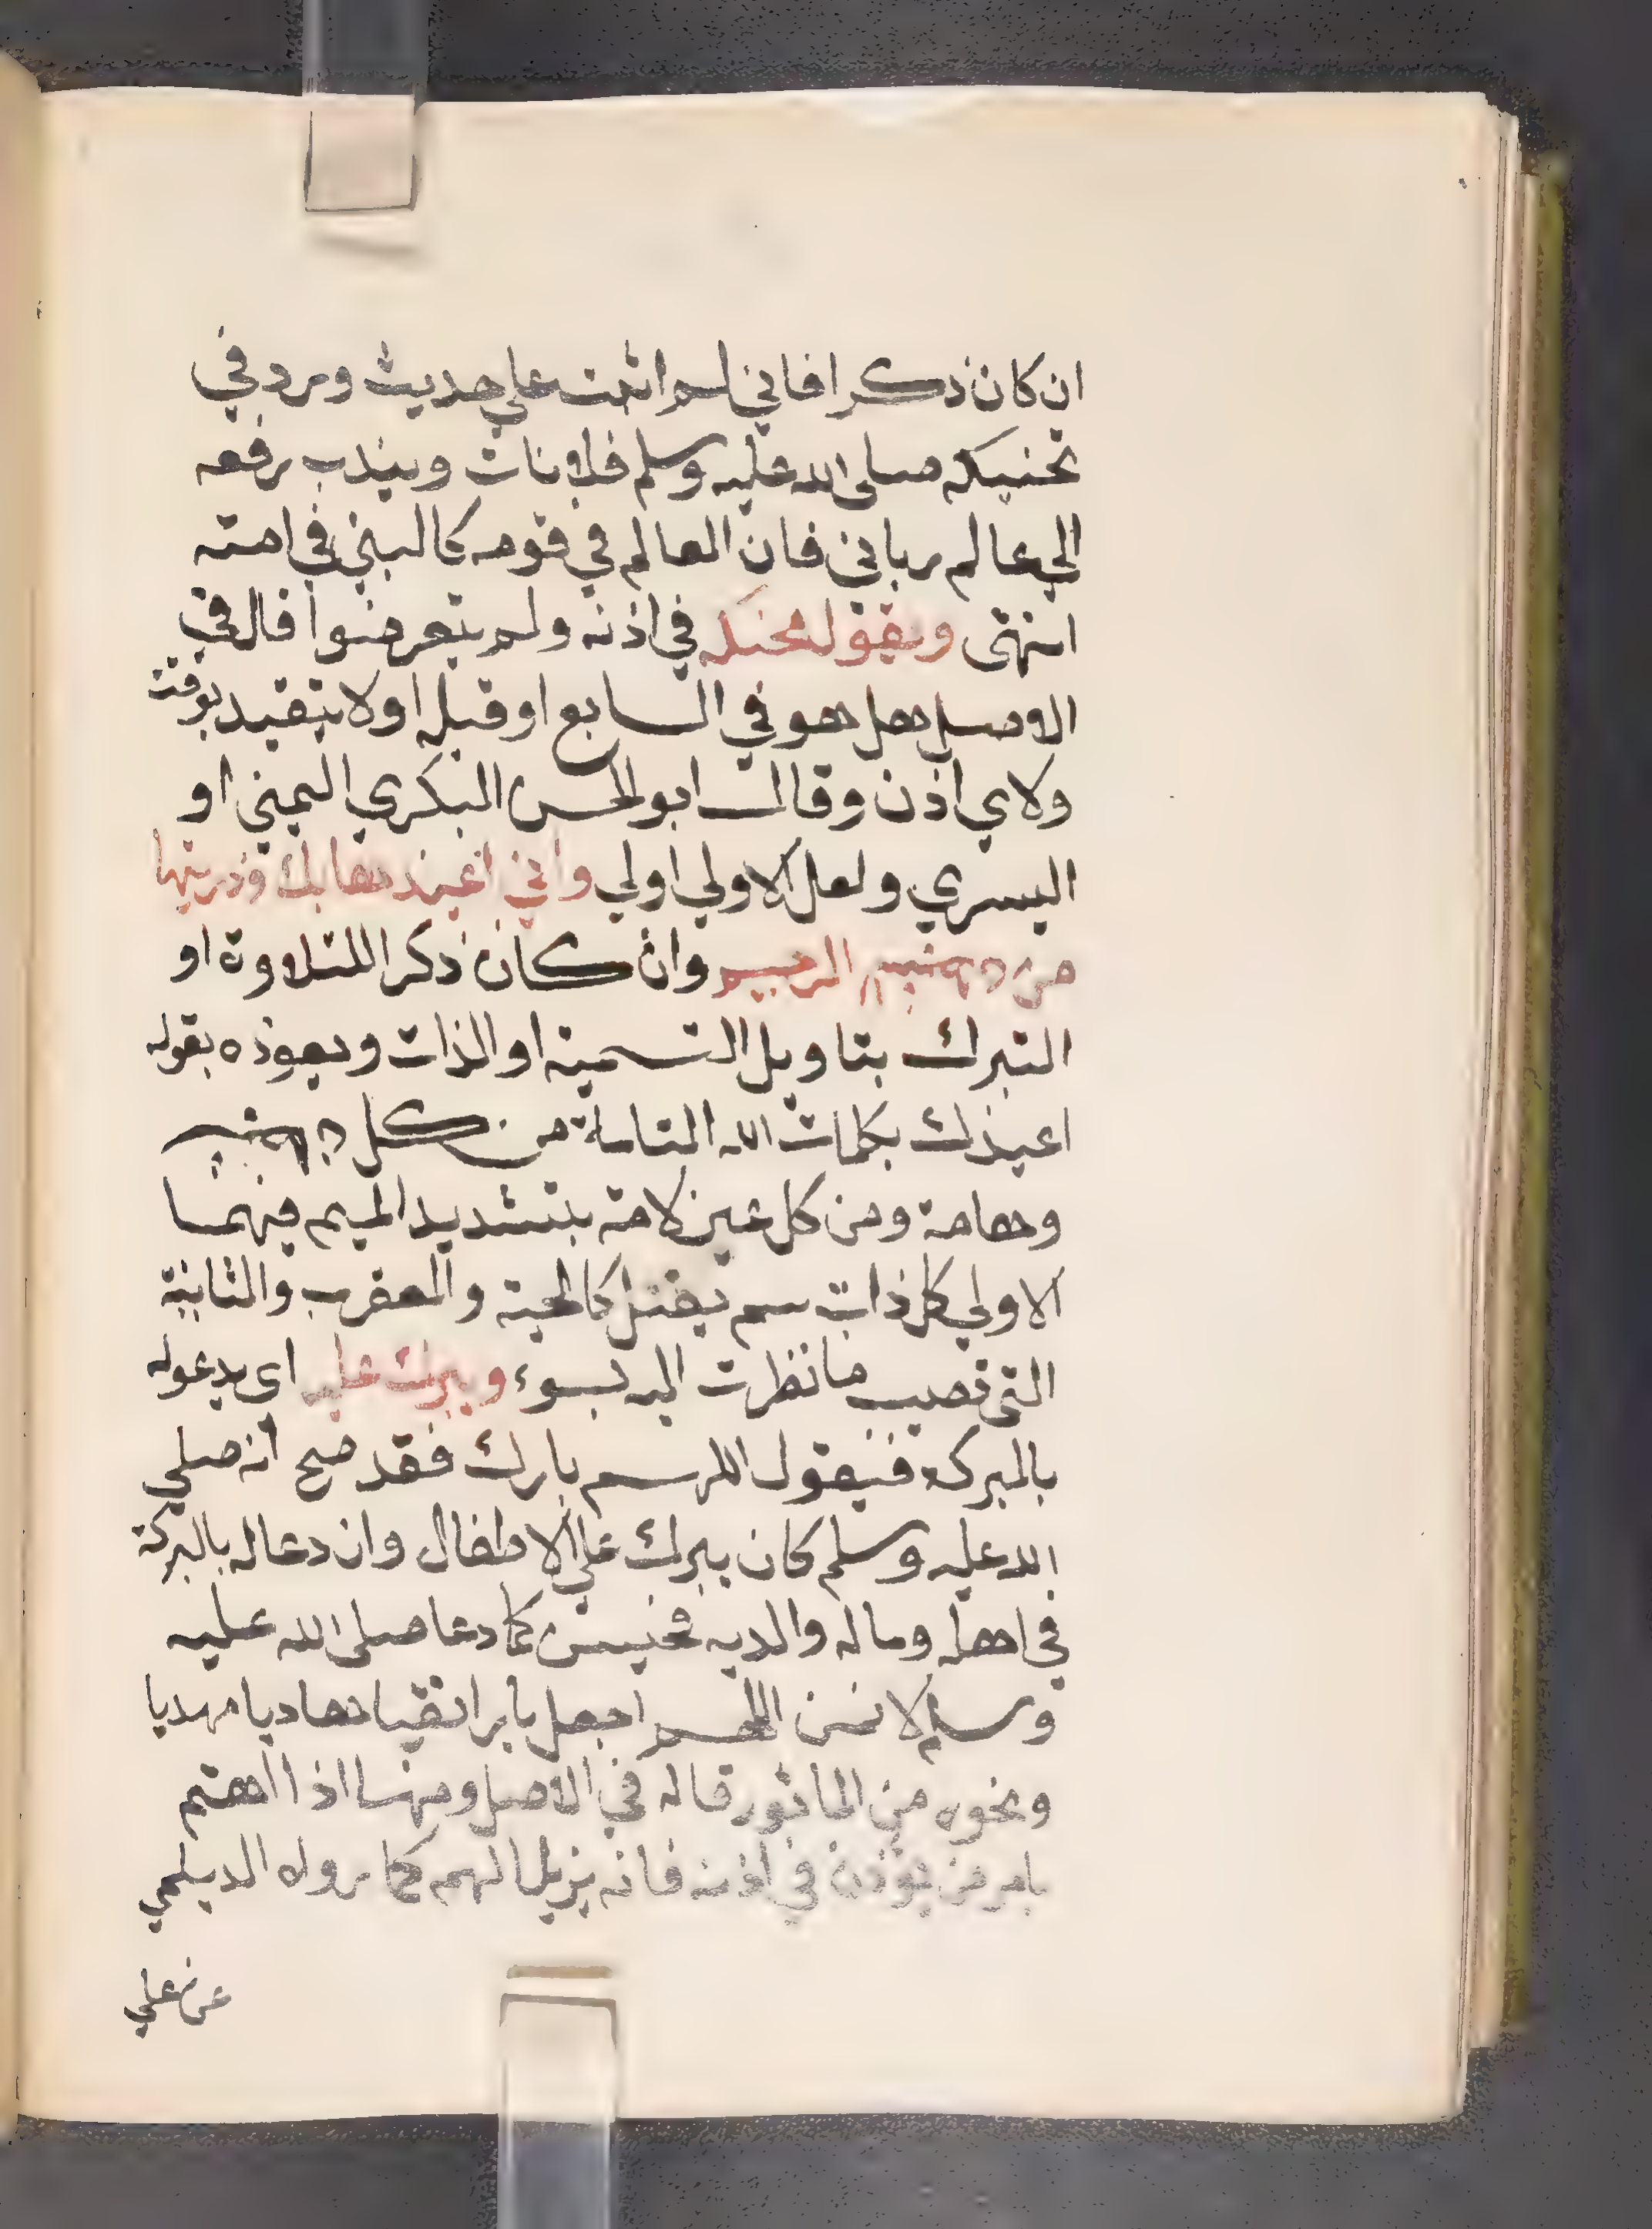 ان كان ذكرا فاني لم اقف على حديث ورد في
تحنيكه صلى الله عليه وسلم فلانات ويندب رفعه
الي عالم رباني فان العالم في قومه كالنبي في امته
انتهى ويقول محنكه في اذنه ولم يتعرضوا قال في
الاصل هل هو في السابع او قبله او لا يتقيد بوقت
ولاي اذن وقال ابو الحسن البكري اليمني او
اليسري ولعل الاولي اولي واني اعيذها بك وذريتها
من الرجيم وان كان ذكرا للتلاوة او
التبرك بتاويل التسمية او الذات ويعوذه بقوله
اعيذك بكلمات الله التامة من كل
وهامة ومن كل عين لامة بتشديد الميم فيهما
الاولي كل ذات سم يقتل كالحية والعقرب والثانية
التي تصيب ما نظرت اليه بسوء ويبرك عليه اى يدعوله
بالبركة فيقول اللهم بارك فقد صح انه صلي
الله عليه وسلم كان يبرك علي الاطفال وان دعاله بالبركة
في اهله وماله والديه فحسن كما دعا صلى الله عليه
وسلم لانس اللهم اجعل بابرا تقيا هاديا مهديا
ونحوه من الماثور قاله في الاصل ومنها اذا اهتم
بامر من يؤذن في اذنه فانه يزيل الهم كما رواه الديلمي
عن علي